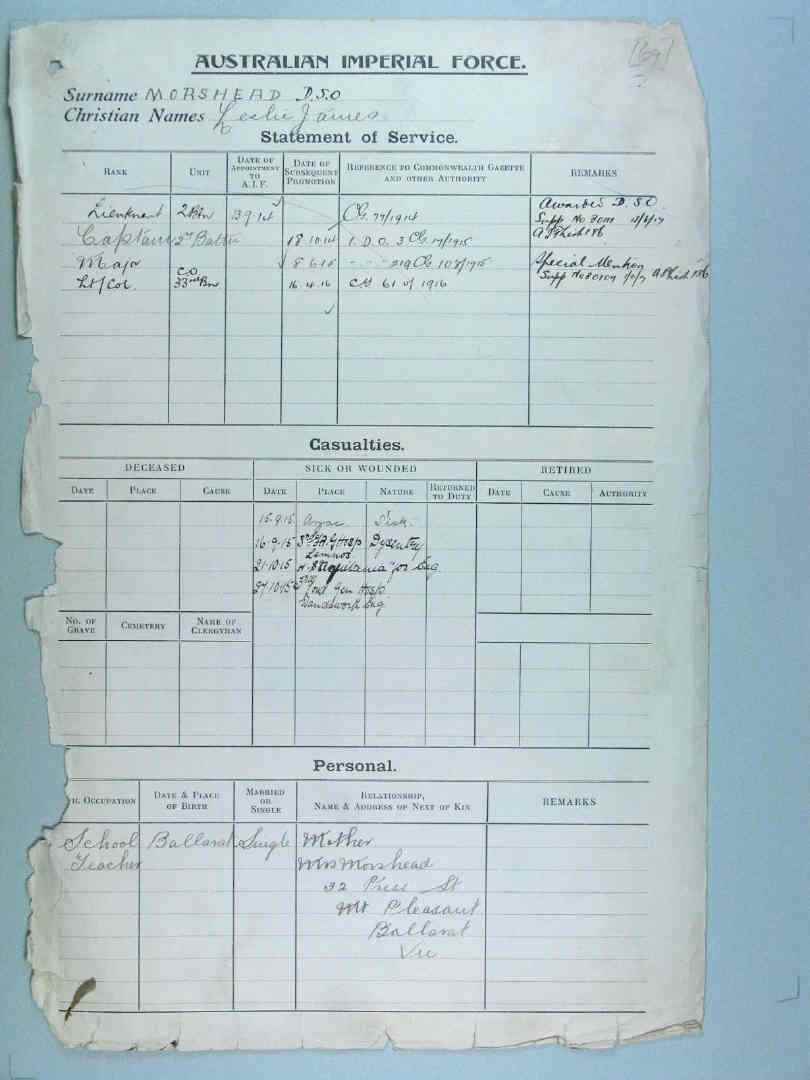 [69]
AUSTRALIAN IMPERIAL FORCE.
Surname MORSHEAD D.S.O
Christian Names Leslie James
Statement of Service.
RANK UNIT DATE OF APPOINTMENT TO A.I.F. DATE OF SUBSEQUENT PROMOTION REFERENCE TO COMMONWEALTH GAZETTE AND OTHER AUTHORITY REMARKS
Lieutenant 2 Btn 3 9 14 CG. 77/1914 Awarded D.S.O
Supp No
Captain 2nd Battn 18.10.14 1. D.O. 3 CG. 17/1915
Major 8 6 15 - - - 219 CG 108/1915 Special Mention
Lt/Col C/O 33rd Bn 16.4.16 CG 61 of 1916 Supp No
Casualties.
DECEASED SICK OR WOUNDED RETIRED
DATE PLACE CAUSE DATE PLACE NATURE RETURNED TO DUTY DATE CAUSE AUTHORITY
15.9.15 Anzac Sick.
16.9.15 3rd A. G Hosp Dysentry
Lemnos
21.10.15 H.S Aquitania for Eng
27.10.15 3rd Lond Gen Hosp
Wandsworth Eng
NO. OF GRAVE CEMETERY NAME OF CLERGYMAN
Personal.
OCCUPATION DATE & PLACE OF BIRTH MARRIED OR SINGLE RELATIONSHIP, NAME & ADDRESS OF NEXT OF KIN REMARKS
School Ballarat Single Mother
Teacher Mrs Morshead
St
Mt Pleasant
Ballarat
Vic